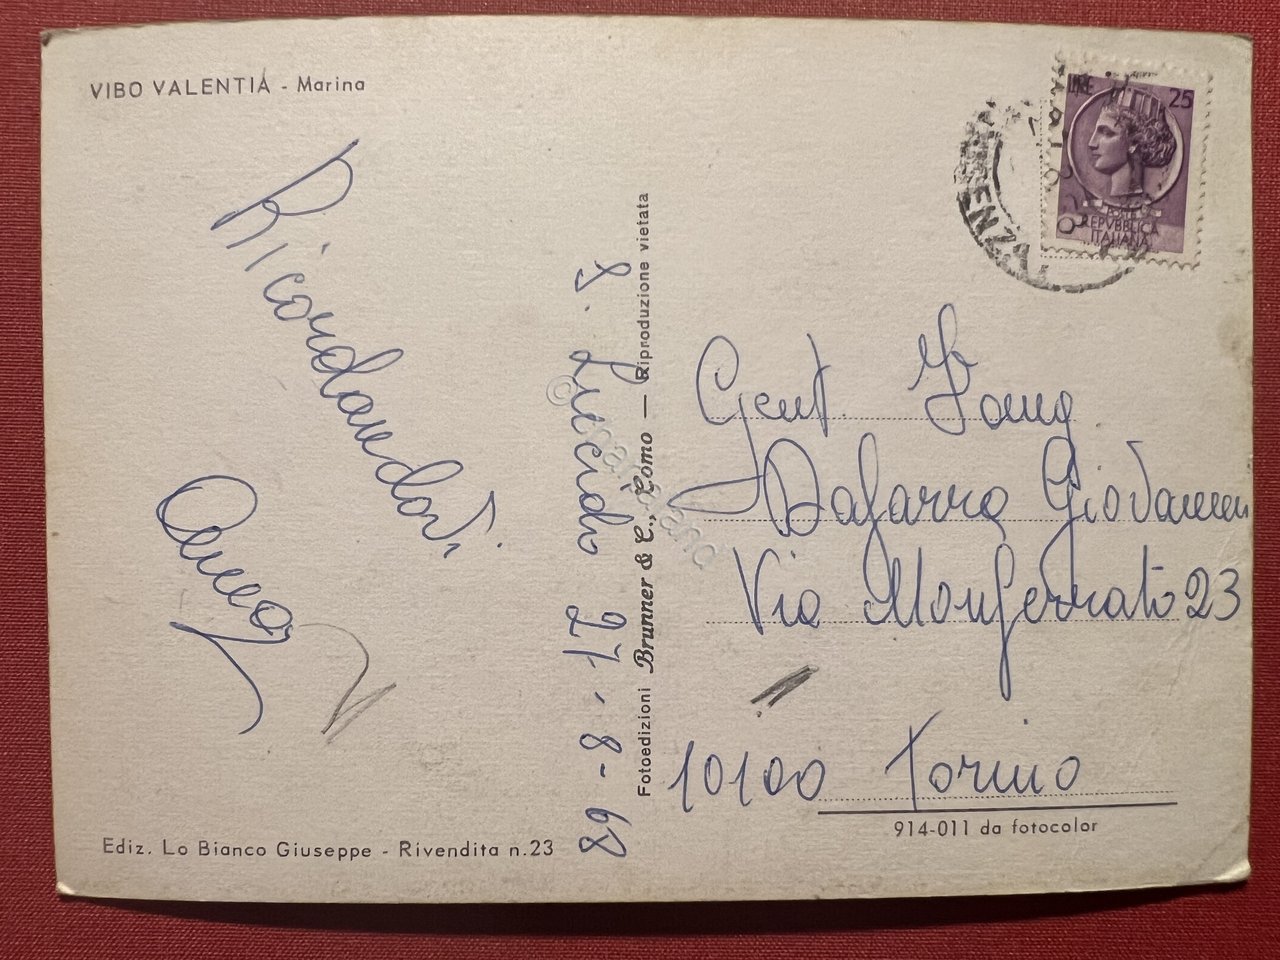 VIBO VALENTIA - Marina
Ricordandovi
Anna
27-8-68
Fotoedizioni Brunner & C., Como — Riproduzione vietata
LIRE 25
POSTE
REPVBBLICA
ITALIANA
Gent. Fam
Dafarra
Via Monferrato 23
10100 Torino
914-011 da fotocolor
Ediz. Lo Bianco Giuseppe - Rivendita n.23